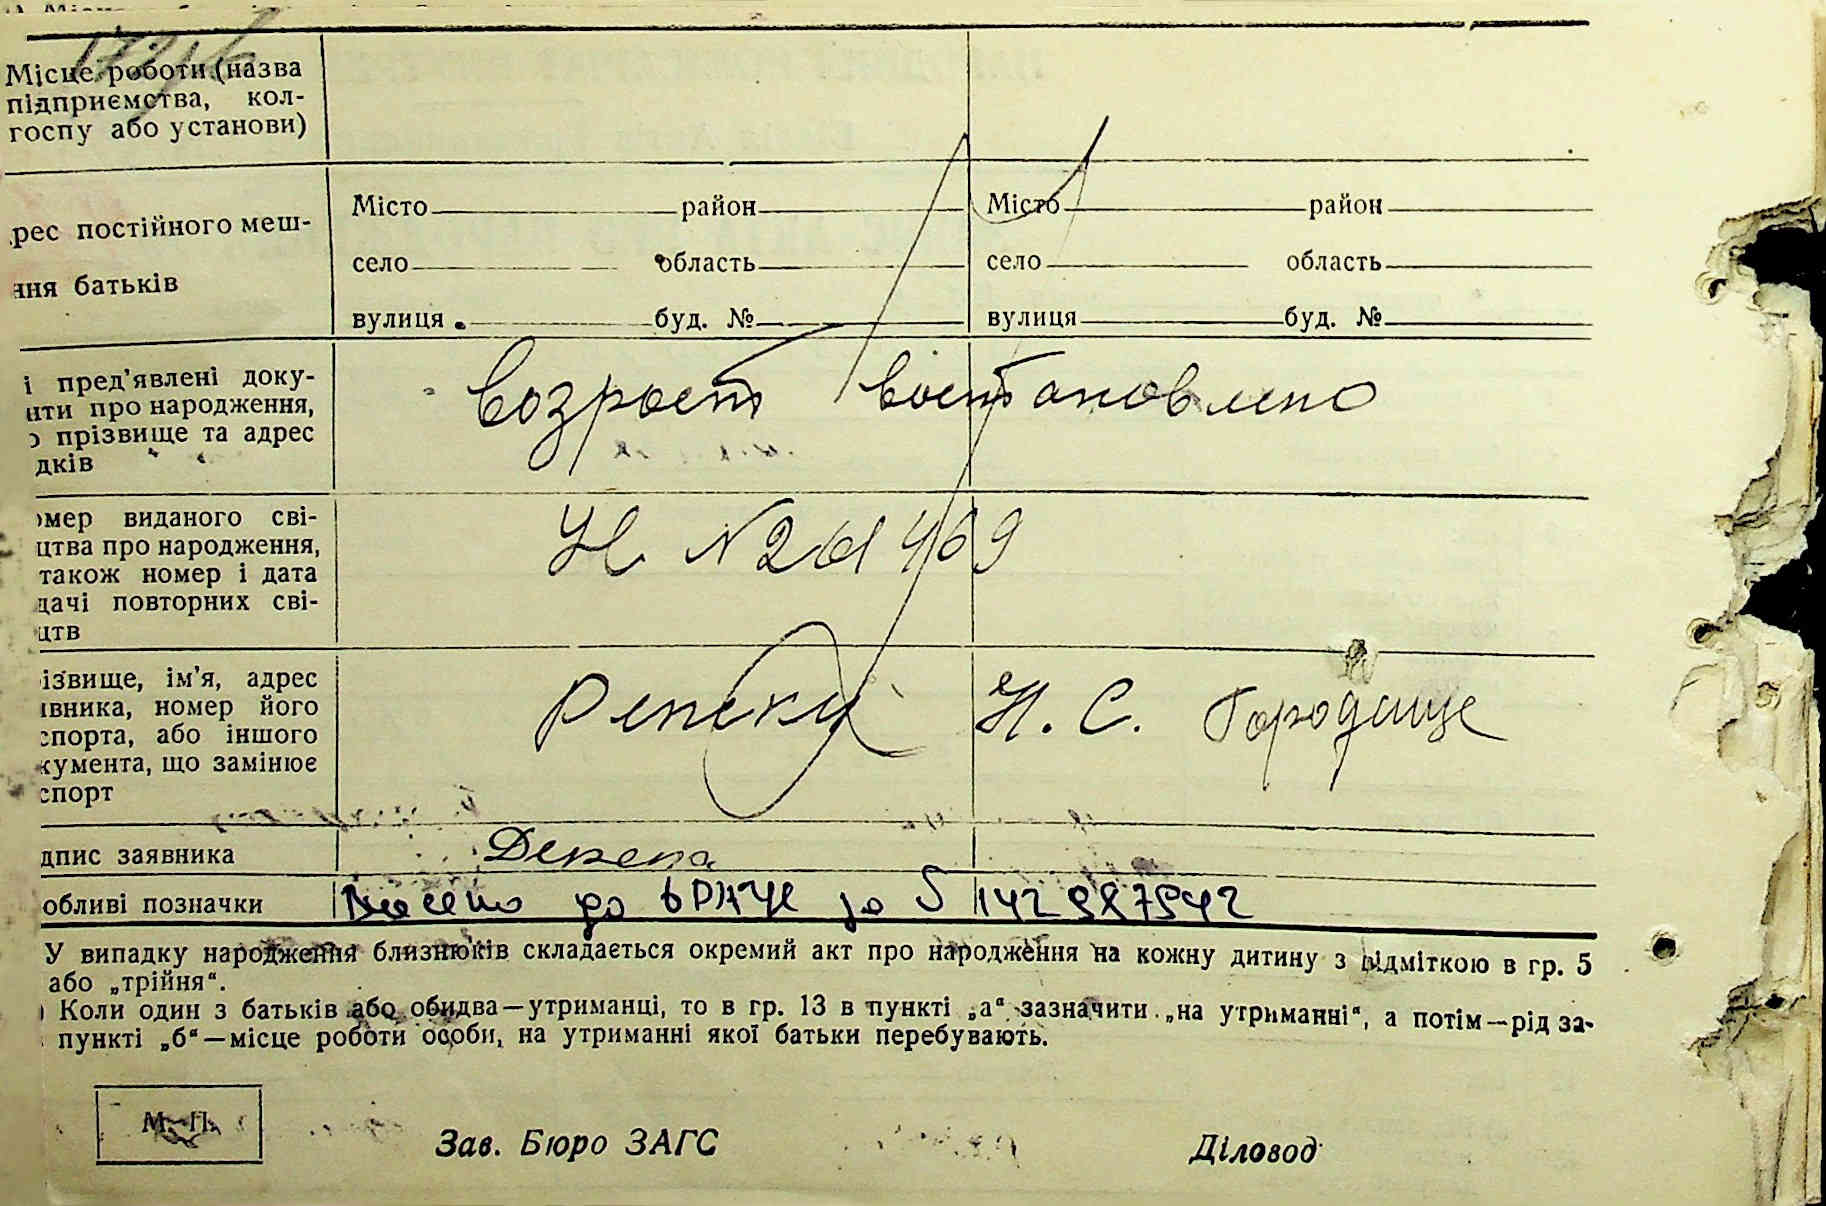 Місце роботи (назва
підприємства, кол-
госпу або установи)
рес постійного меш-
ння батьків
Місто район
село область
вулиця буд. №
Місто район
село область
вулиця буд. №
і пред’явлені доку-
нти про народження,
о прізвище та адрес
дків
Возраст востановлено
омер виданого сві-
цтва про народження,
також номер і дата
дачі повторних сві-
цтв
№ 261469
ізвище, ім’я, адрес
явника, номер його
спорта, або іншого
кумента, що замінює
спорт
С. Городище
дпис заявника
обливі позначки
Внесено до ДРАЦС за
У випадку народження близнюків складається окремий акт про народження на кожну дитину з відміткою в гр. 5
або „трійня“.
Коли один з батьків або обидва—утриманці, то в гр. 13 в пункті „а“ зазначити „на утриманні“, а потім—рід за-
пункті „б“—місце роботи особи, на утриманні якої батьки перебувають.
М. П.
Зав. Бюро ЗАГС
Діловод